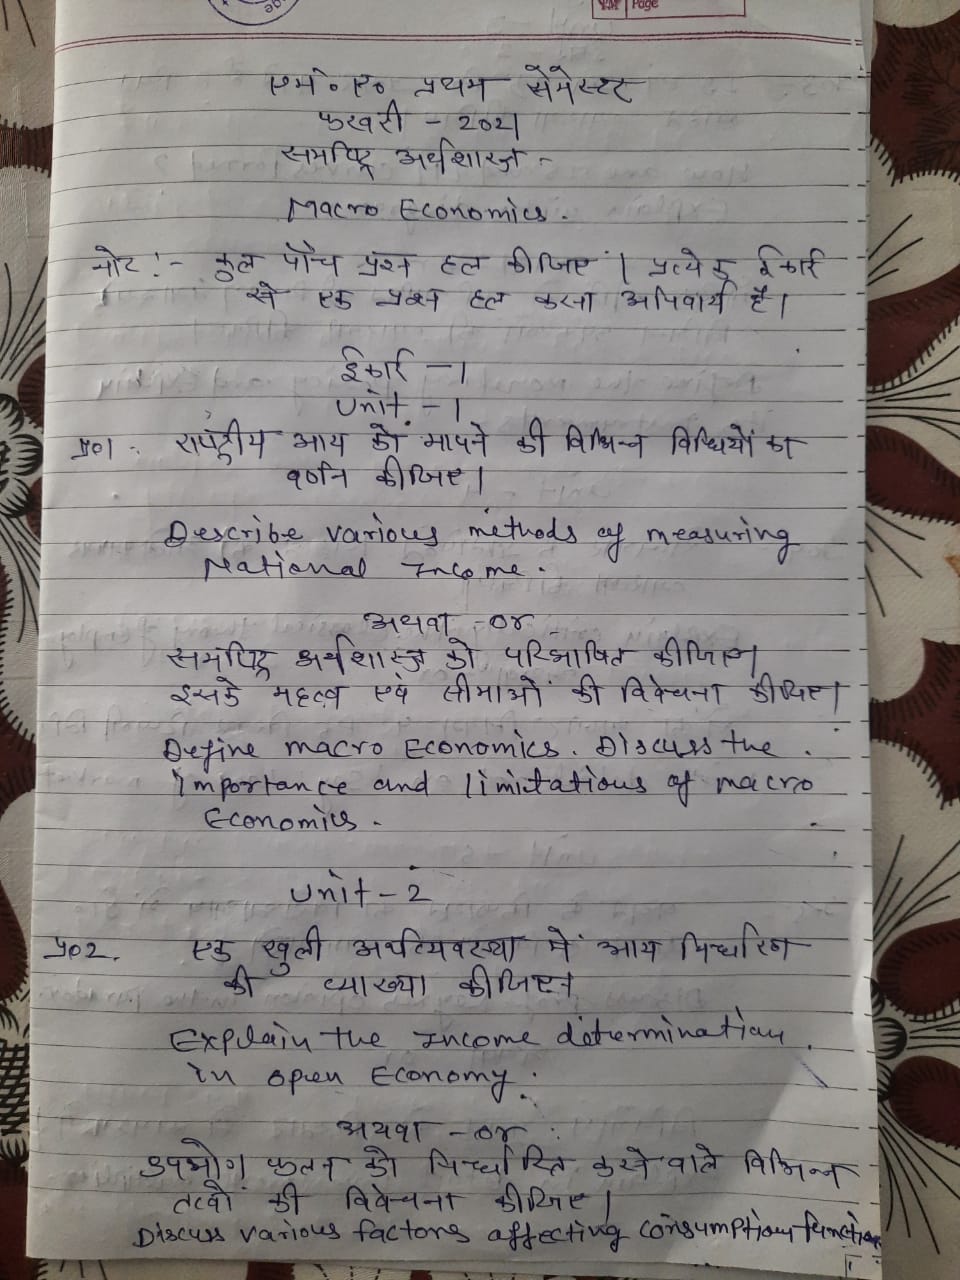 Page
एम० ए० प्रथम सेमेस्टर
फरवरी - 2021
समष्टि अर्थशास्त्र -
Macro Economics.
नोट :- कुल पाँच प्रश्न हल कीजिए । प्रत्येक ईकाई
से एक प्रश्न हल करना अनिवार्य है।
ईकाई - 1
Unit - 1
प्र01. राष्ट्रीय आय को मापने की विभिन्न विधियों का
वर्णन कीजिए।
Describe various methods of measuring
National Income.
अथवा - or
समष्टि अर्थशास्त्र को परिभाषित कीजिए।
इसके महत्व एवं सीमाओं की विवेचना कीजिए।
Define macro Economics. Discuss the
importance and limitations of macro
Economics.
Unit - 2
प्र02. एक खुली अर्थव्यवस्था में आय निर्धारण
की व्याख्या कीजिए।
Explain the Income determination
in open Economy.
अथवा - or
उपभोग फलन को निर्धारित करने वाले विभिन्न
तत्वों की विवेचना कीजिए।
Discuss various factors affecting consumption function